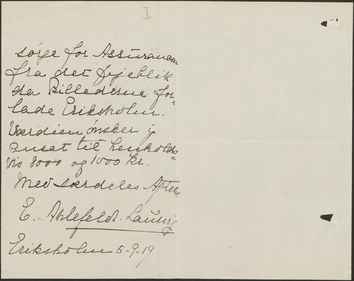 sørge for Assurancen
fra det Øjeblik
da Billederne for-
lade Eriksholm.
Værdien ønsker j
ansat til henholds-
vis 8000 og 1000 Kr.
Med særdeles Agtelse
E. Ahlefeldt-Laurvig
Eriksholm 5-9.19